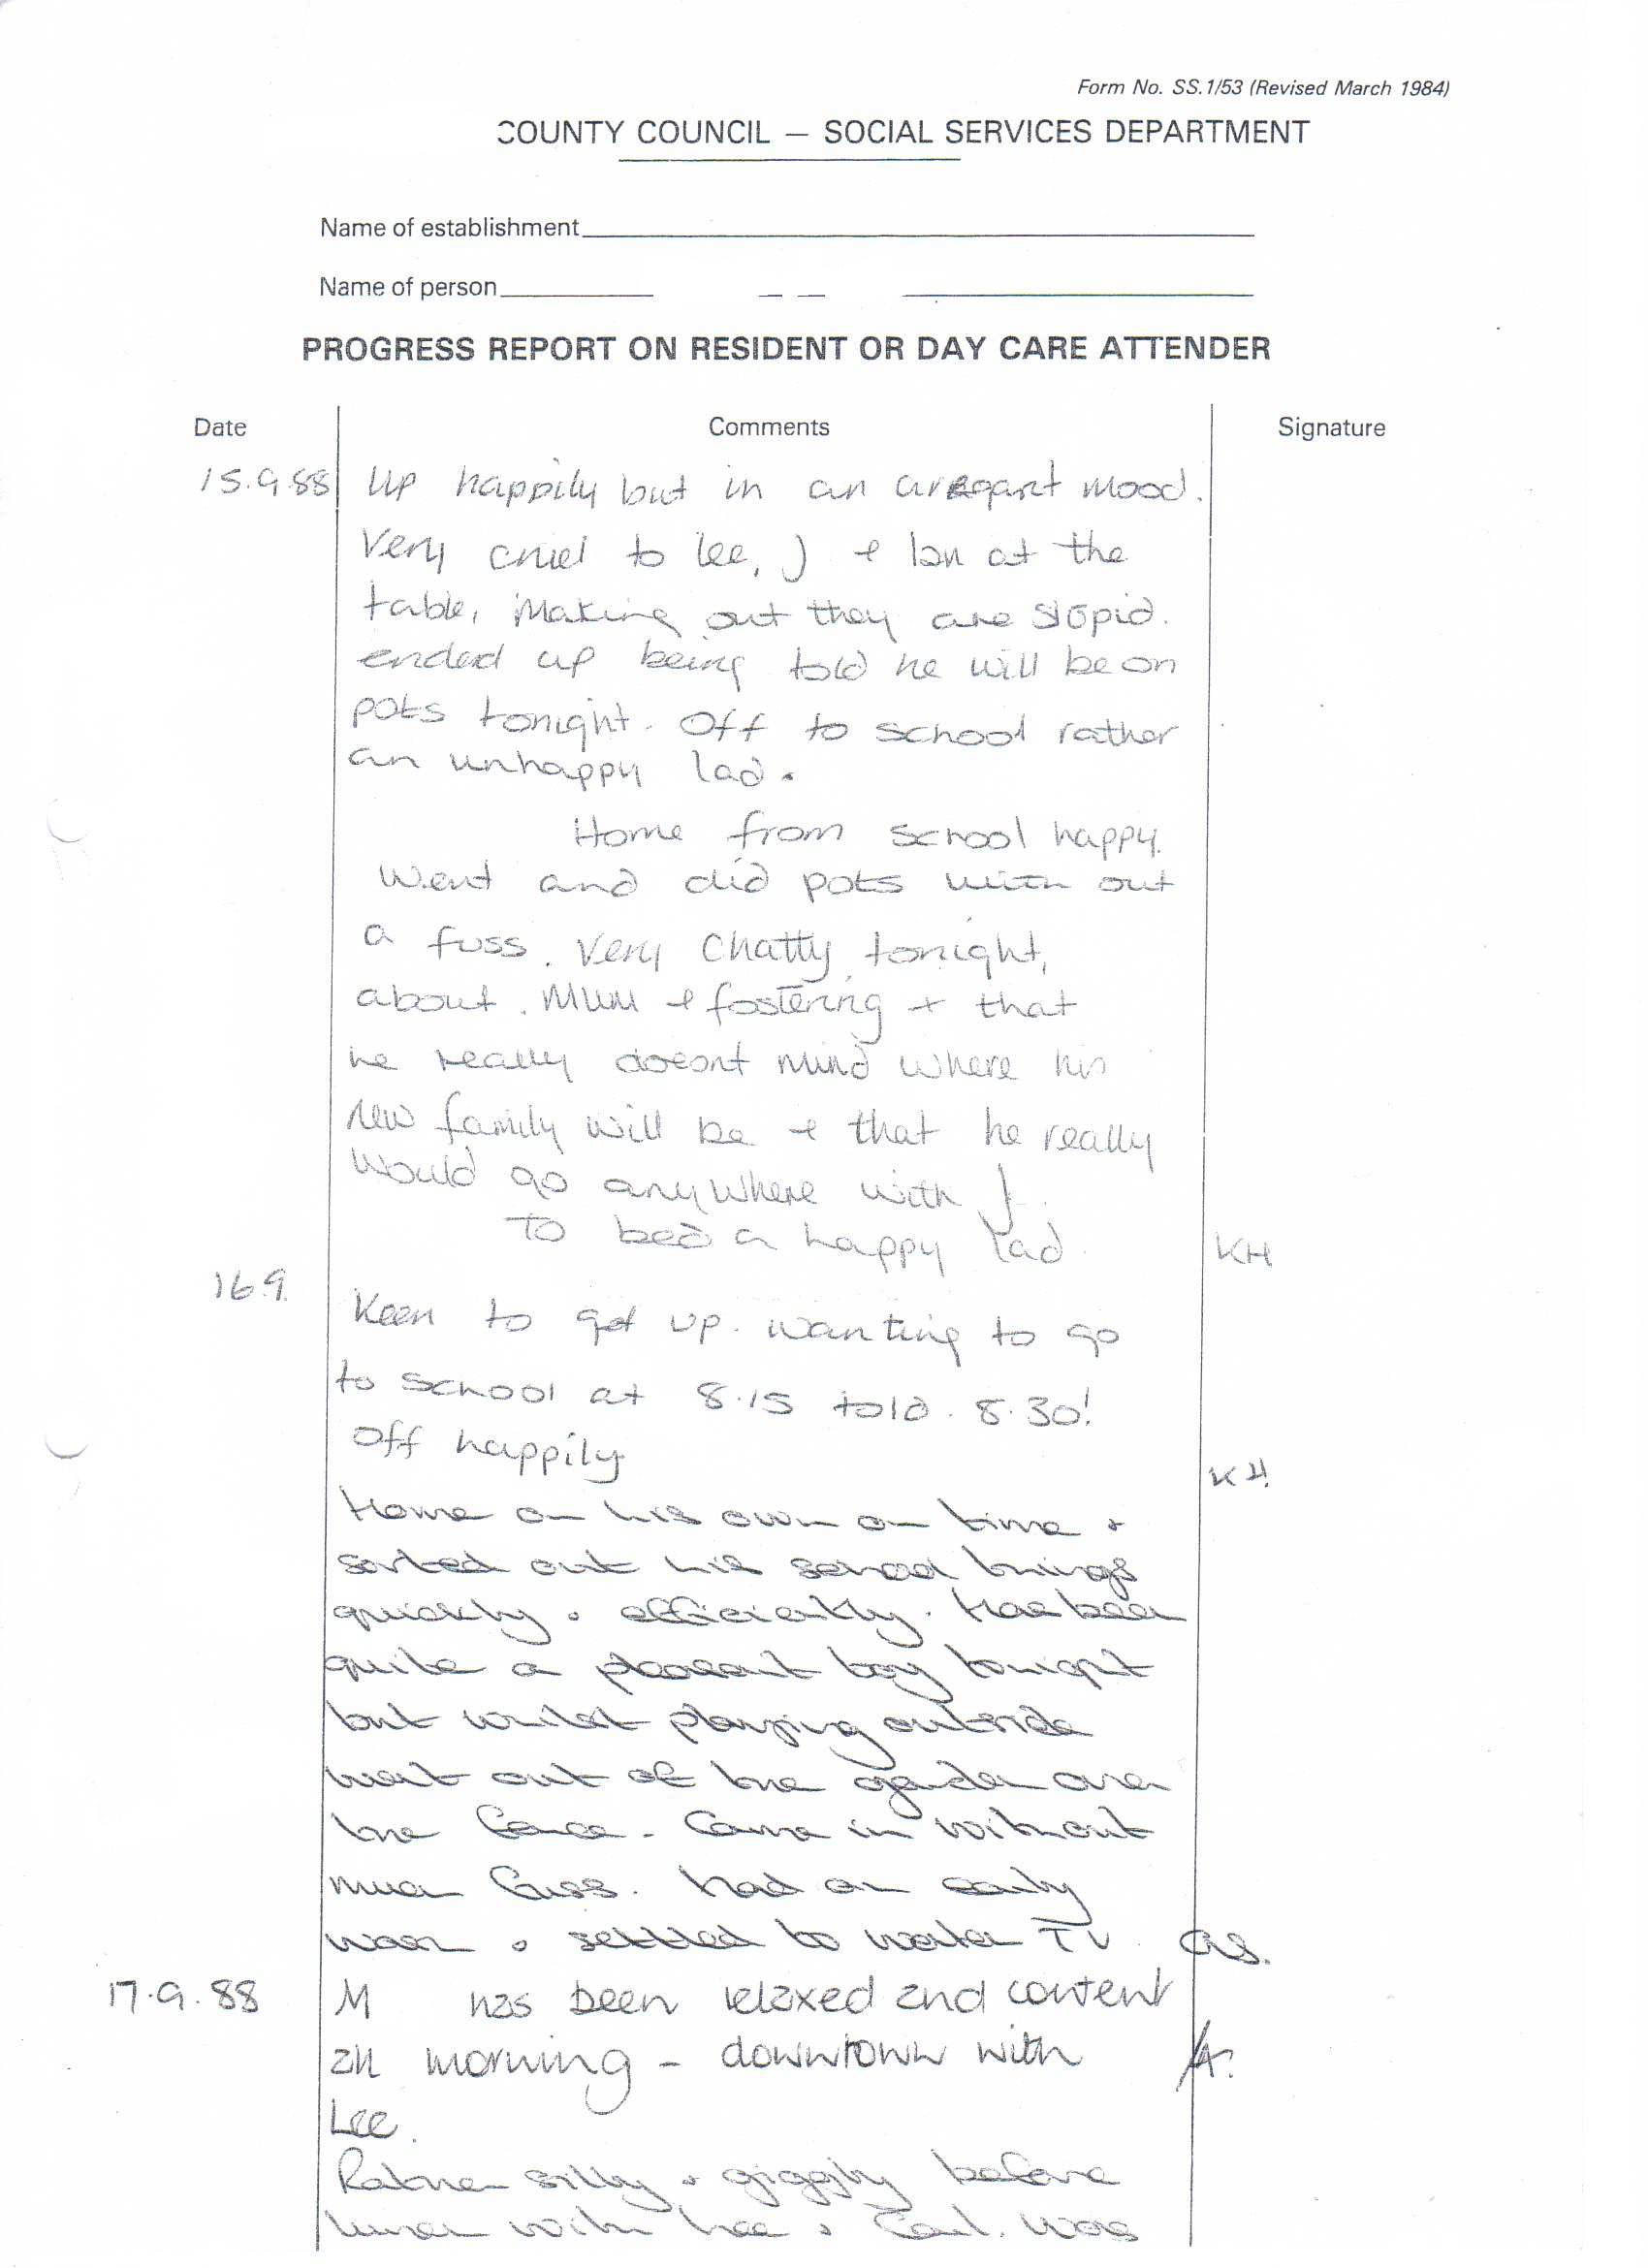 Form No. SS.1/53 (Revised March 1984)
COUNTY COUNCIL — SOCIAL SERVICES DEPARTMENT
Name of establishment
Name of person
PROGRESS REPORT ON RESIDENT OR DAY CARE ATTENDER
Date Comments Signature
15.9.88 Up happily but in an arrogant mood.
Very cruel to Lee, J + Ian at the
table, Making out they are stupid.
ended up being told he will be on
pots tonight. Off to school rather
an unhappy lad.
Home from school happy.
Went and did pots with out
a fuss. Very Chatty tonight,
about. Mum + fostering + that
he really doesnt Mind where his
New family will be + that he really
Would go anywhere with J.
To bed a happy lad. KH
16.9. Keen to get up. wanting to go
to school at 8.15 told. 8.30!
Off happily KH.
Home on his own on time +
sorted out his school things
quickly + efficiently. Has been
quite a pleasant boy tonight
but whilst playing outside
went out of the garden over
the fence. Came in without
much fuss. Had an early
wash + settled to watch TV. as.
17.9.88 M has been relaxed and content
all morning - downtown with A.
Lee.
Rather silly + giggly before
lunch with Lee + Carl. Was